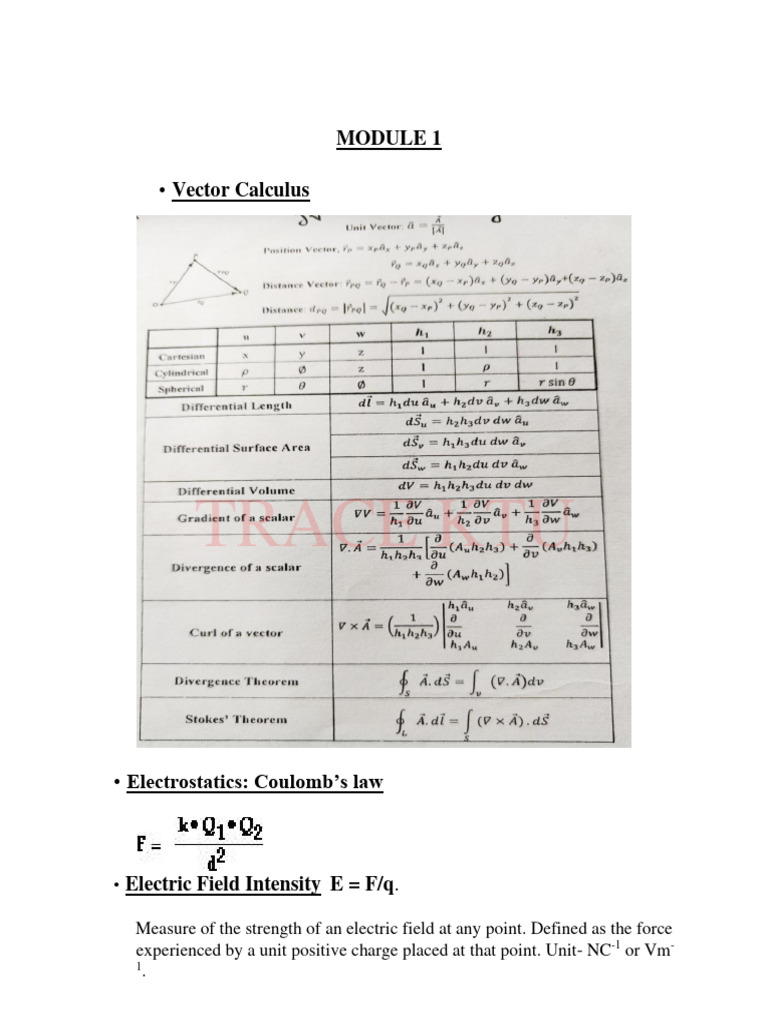 MODULE 1
• Vector Calculus
Unit Vector: â = Ā/|Ā|
Position Vector, r̄P = xPâx + yPây + zPâz
r̄Q = xQâx + yQây + zQâz
Distance Vector: r̄PQ = r̄Q − r̄P = (xQ − xP)âx + (yQ − yP)ây+(zQ − zP)âz
Distance: dPQ = |r̄PQ| = √((xQ − xP)² + (yQ − yP)² + (zQ − zP)²)
u v w h₁ h₂ h₃
Cartesian x y z 1 1 1
Cylindrical ρ Ø z 1 ρ 1
Spherical r θ Ø 1 r r sin θ
Differential Length dl⃗ = h₁du âu + h₂dv âv + h₃dw âw
dS⃗u = h₂h₃dv dw âu
Differential Surface Area dS⃗v = h₁h₃du dw âv
dS⃗w = h₁h₂du dv âw
Differential Volume dV = h₁h₂h₃du dv dw
Gradient of a scalar ∇V = 1/h₁ ∂V/∂u âu + 1/h₂ ∂V/∂v âv + 1/h₃ ∂V/∂w âw
TRACE KTU
Divergence of a scalar ∇. A⃗ = 1/h₁h₂h₃ [∂/∂u (Auh₂h₃) + ∂/∂v (Avh₁h₃)
+ ∂/∂w (Awh₁h₂)]
Curl of a vector ∇ × A⃗ = (1/h₁h₂h₃) | h₁âu h₂âv h₃âw
∂/∂u ∂/∂v ∂/∂w
h₁Au h₂Av h₃Aw |
Divergence Theorem ∮S A⃗. dS⃗ = ∫v (∇. A⃗)dv
Stokes' Theorem ∮L A⃗. dl⃗ = ∫S (∇ × A⃗). dS⃗
• Electrostatics: Coulomb’s law
F = k•Q₁•Q₂/d²
• Electric Field Intensity E = F/q.
Measure of the strength of an electric field at any point. Defined as the force
experienced by a unit positive charge placed at that point. Unit- NC⁻¹ or Vm⁻
¹.